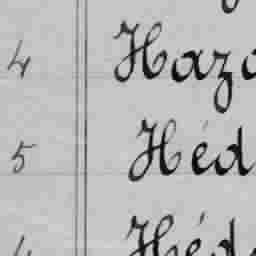 4 Haza
5 Héd
4 Héd